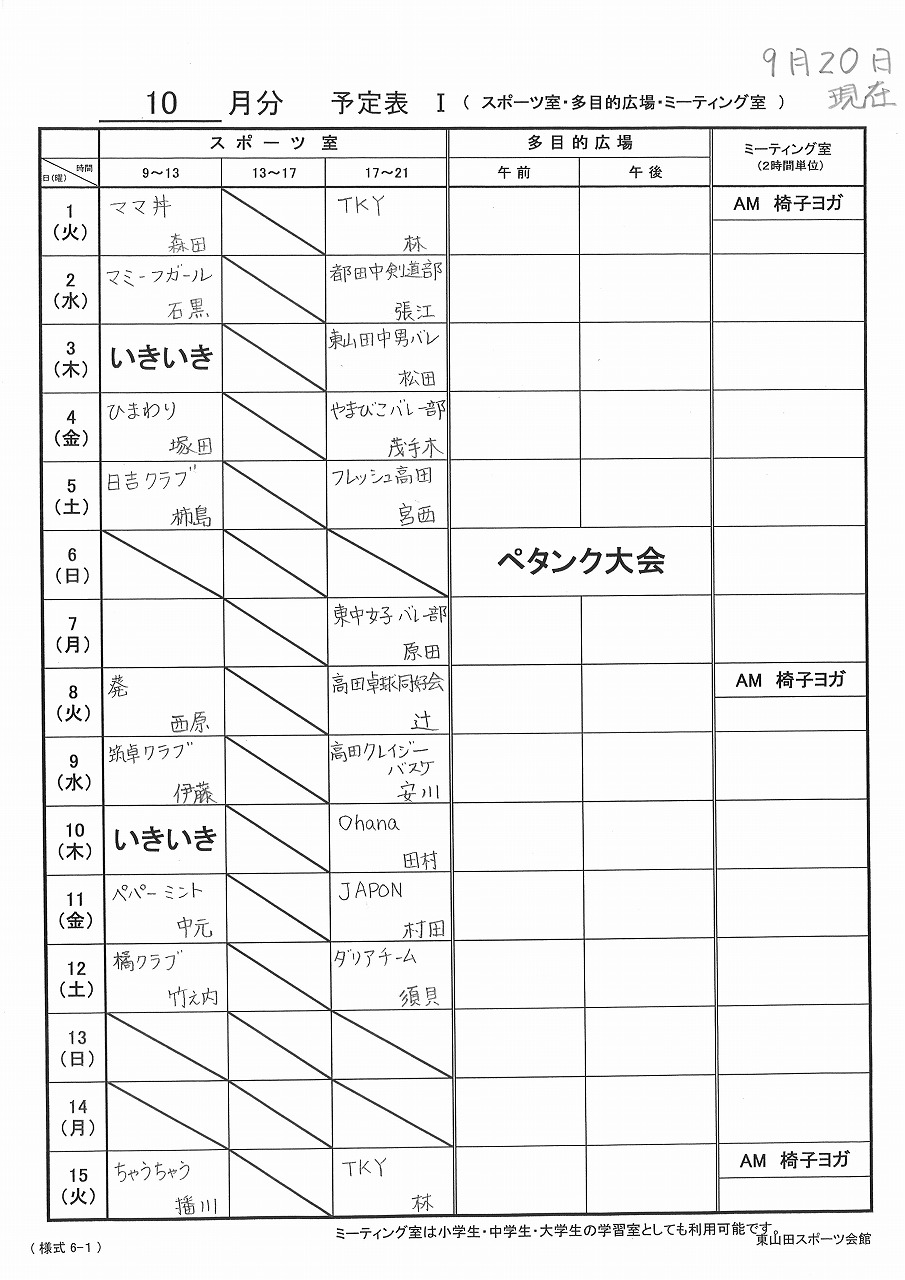 9月20日
現在
10 月分 予定表 Ⅰ ( スポーツ室・多目的広場・ミーティング室 )
スポーツ室 多目的広場 ミーティング室
(2時間単位)
時間
日(曜) 9～13 13～17 17～21 午前 午後
1 ママ丼 TKY AM 椅子ヨガ
(火) 森田 林
2 マミーフガール 都田中剣道部
(水) 石黒 張江
3 いきいき 東山田中男バレ
(木) 松田
4 ひまわり やまびこバレー部
(金) 塚田 茂手木
5 日吉クラブ フレッシュ高田
(土) 柿島 宮西
6 ペタンク大会
(日)
7 東中女子バレー部
(月) 原田
8 高田卓球同好会 AM 椅子ヨガ
(火) 西原 辻
9 筑卓クラブ 高田クレイジー
バスケ
(水) 伊藤 安川
10 いきいき Ohana
(木) 田村
11 ペパーミント JAPON
(金) 中元 村田
12 橘クラブ ダリアチーム
(土) 竹之内 須貝
13
(日)
14
(月)
15 ちゃうちゃう TKY AM 椅子ヨガ
(火) 播川 林
ミーティング室は小学生・中学生・大学生の学習室としても利用可能です。
( 様式 6-1 ) 東山田スポーツ会館